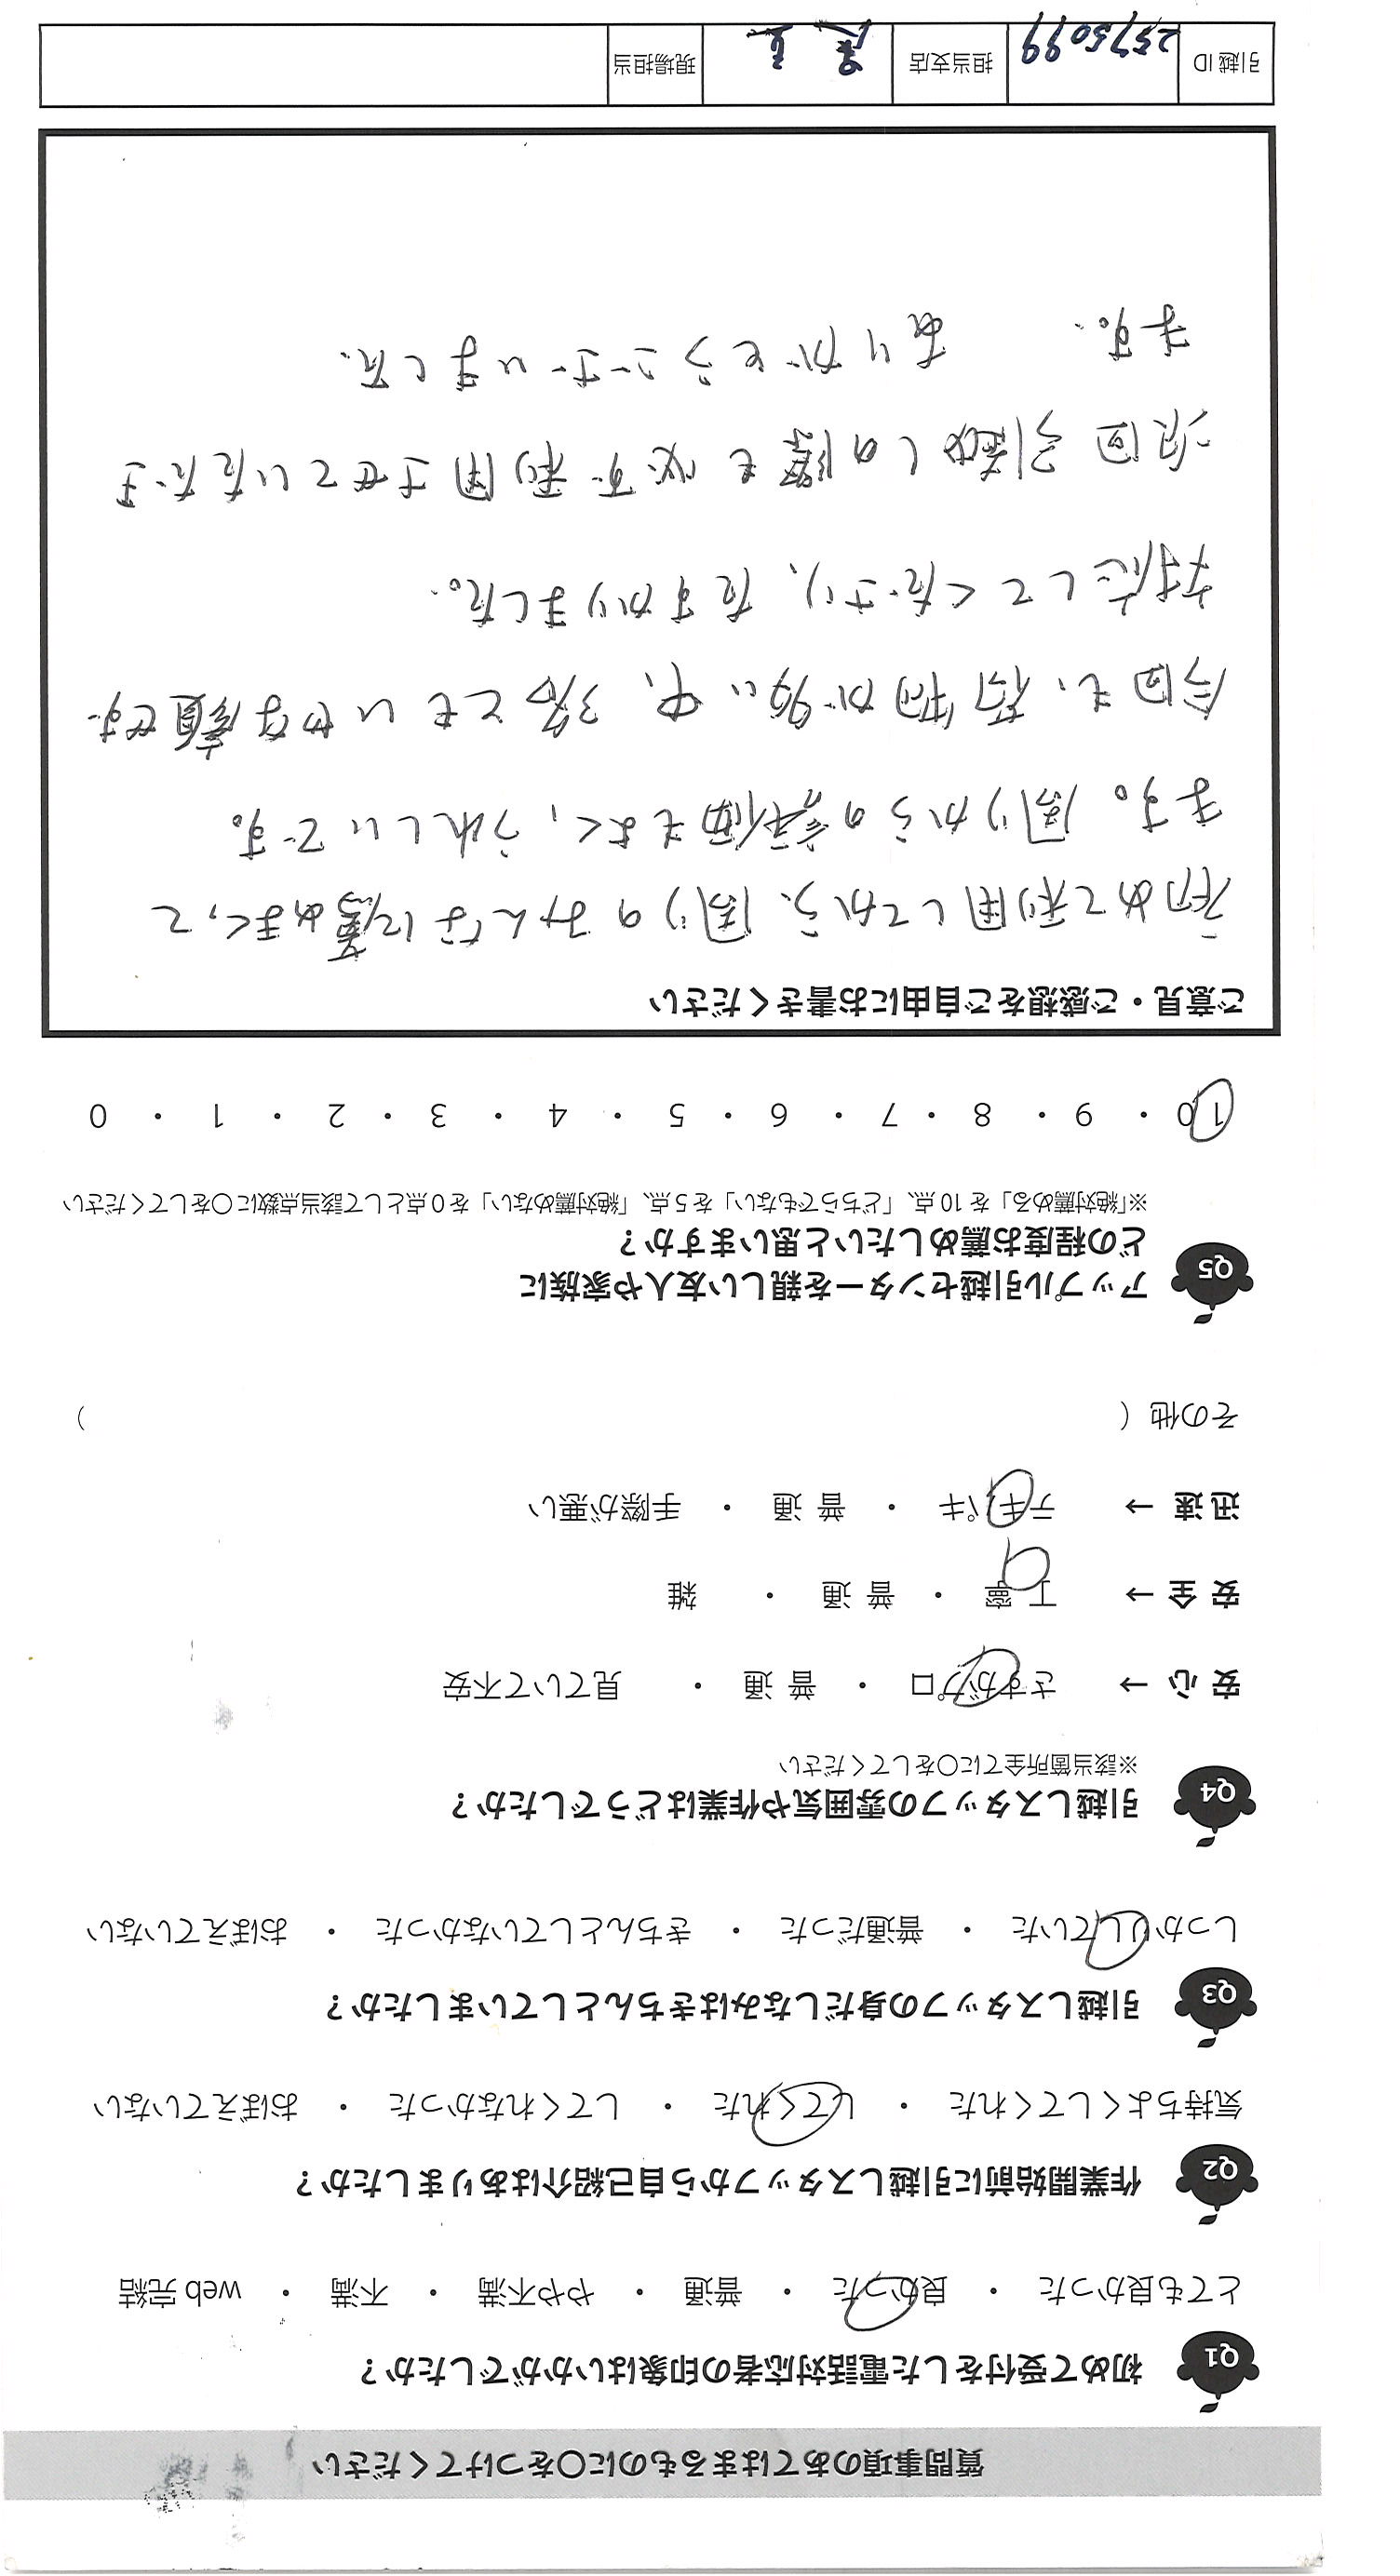 質問事項のあてはまるものに○をつけてください
Q1 初めて受付をした電話対応者の印象はいかがでしたか？
とても良かった ・ 良かった ・ 普通 ・ やや不満 ・ 不満 ・ web 完結
Q2 作業開始前に引越しスタッフから自己紹介はありましたか？
気持ちよくしてくれた ・ してくれた ・ してくれなかった ・ おぼえていない
Q3 引越しスタッフの身だしなみはきちんとしていましたか？
しっかりしていた ・ 普通だった ・ きちんとしていなかった ・ おぼえていない
Q4 引越しスタッフの雰囲気や作業はどうでしたか？
※該当箇所全てに○をしてください
安心 → さすがプロ ・ 普通 ・ 見ていて不安
安全 → 丁寧 ・ 普通 ・ 雑
迅速 → テキパキ ・ 普通 ・ 手際が悪い
その他（ ）
Q5 アップル引越センターを親しい友人や家族に
どの程度お薦めしたいと思いますか？
※「絶対薦める」を 10 点、「どちらでもない」を 5 点、「絶対薦めない」を 0 点として該当点数に○をしてください
10 ・ 9 ・ 8 ・ 7 ・ 6 ・ 5 ・ 4 ・ 3 ・ 2 ・ 1 ・ 0
ご意見・ご感想をご自由にお書きください
初めて利用してから、周りのみんなに薦めまくって
ます。周りからの評価もよく、うれしいです。
今回も、荷物が多い中、3名ともいやな顔せず
対応してくださり、たすかりました。
次回引越しの際も必ず利用させていただき
ます。 ありがとうございました。
引越 ID 2575099 担当支店 現場担当